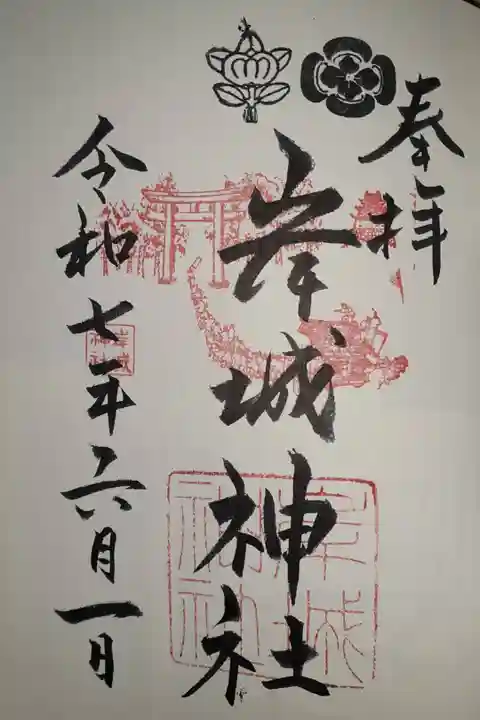 奉拝
岸城神社
令和七年六月一日
岸城
神社
岸城
神社